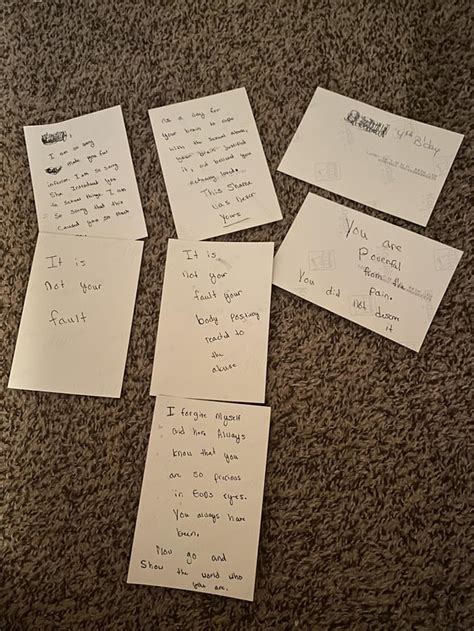 I am so sorry
made you feel
inferior. I am so sorry
She introduced you
to sexual things. I am
so sorry that this
caused you so much
As a way for
your brain to cope
with the sexual abuse,
your brain
it, and believed you
This Shame
was Never
Yours
4th B'day
You are
Powerful
from the
pain.
You did not
it
It is
not your
fault
It is
not your
fault your
body
to
the
abuse
I forgive Myself
and have Always
know that you
are so precious
in God's eyes.
You always have
been.
Now go and
Show the world who
you are.